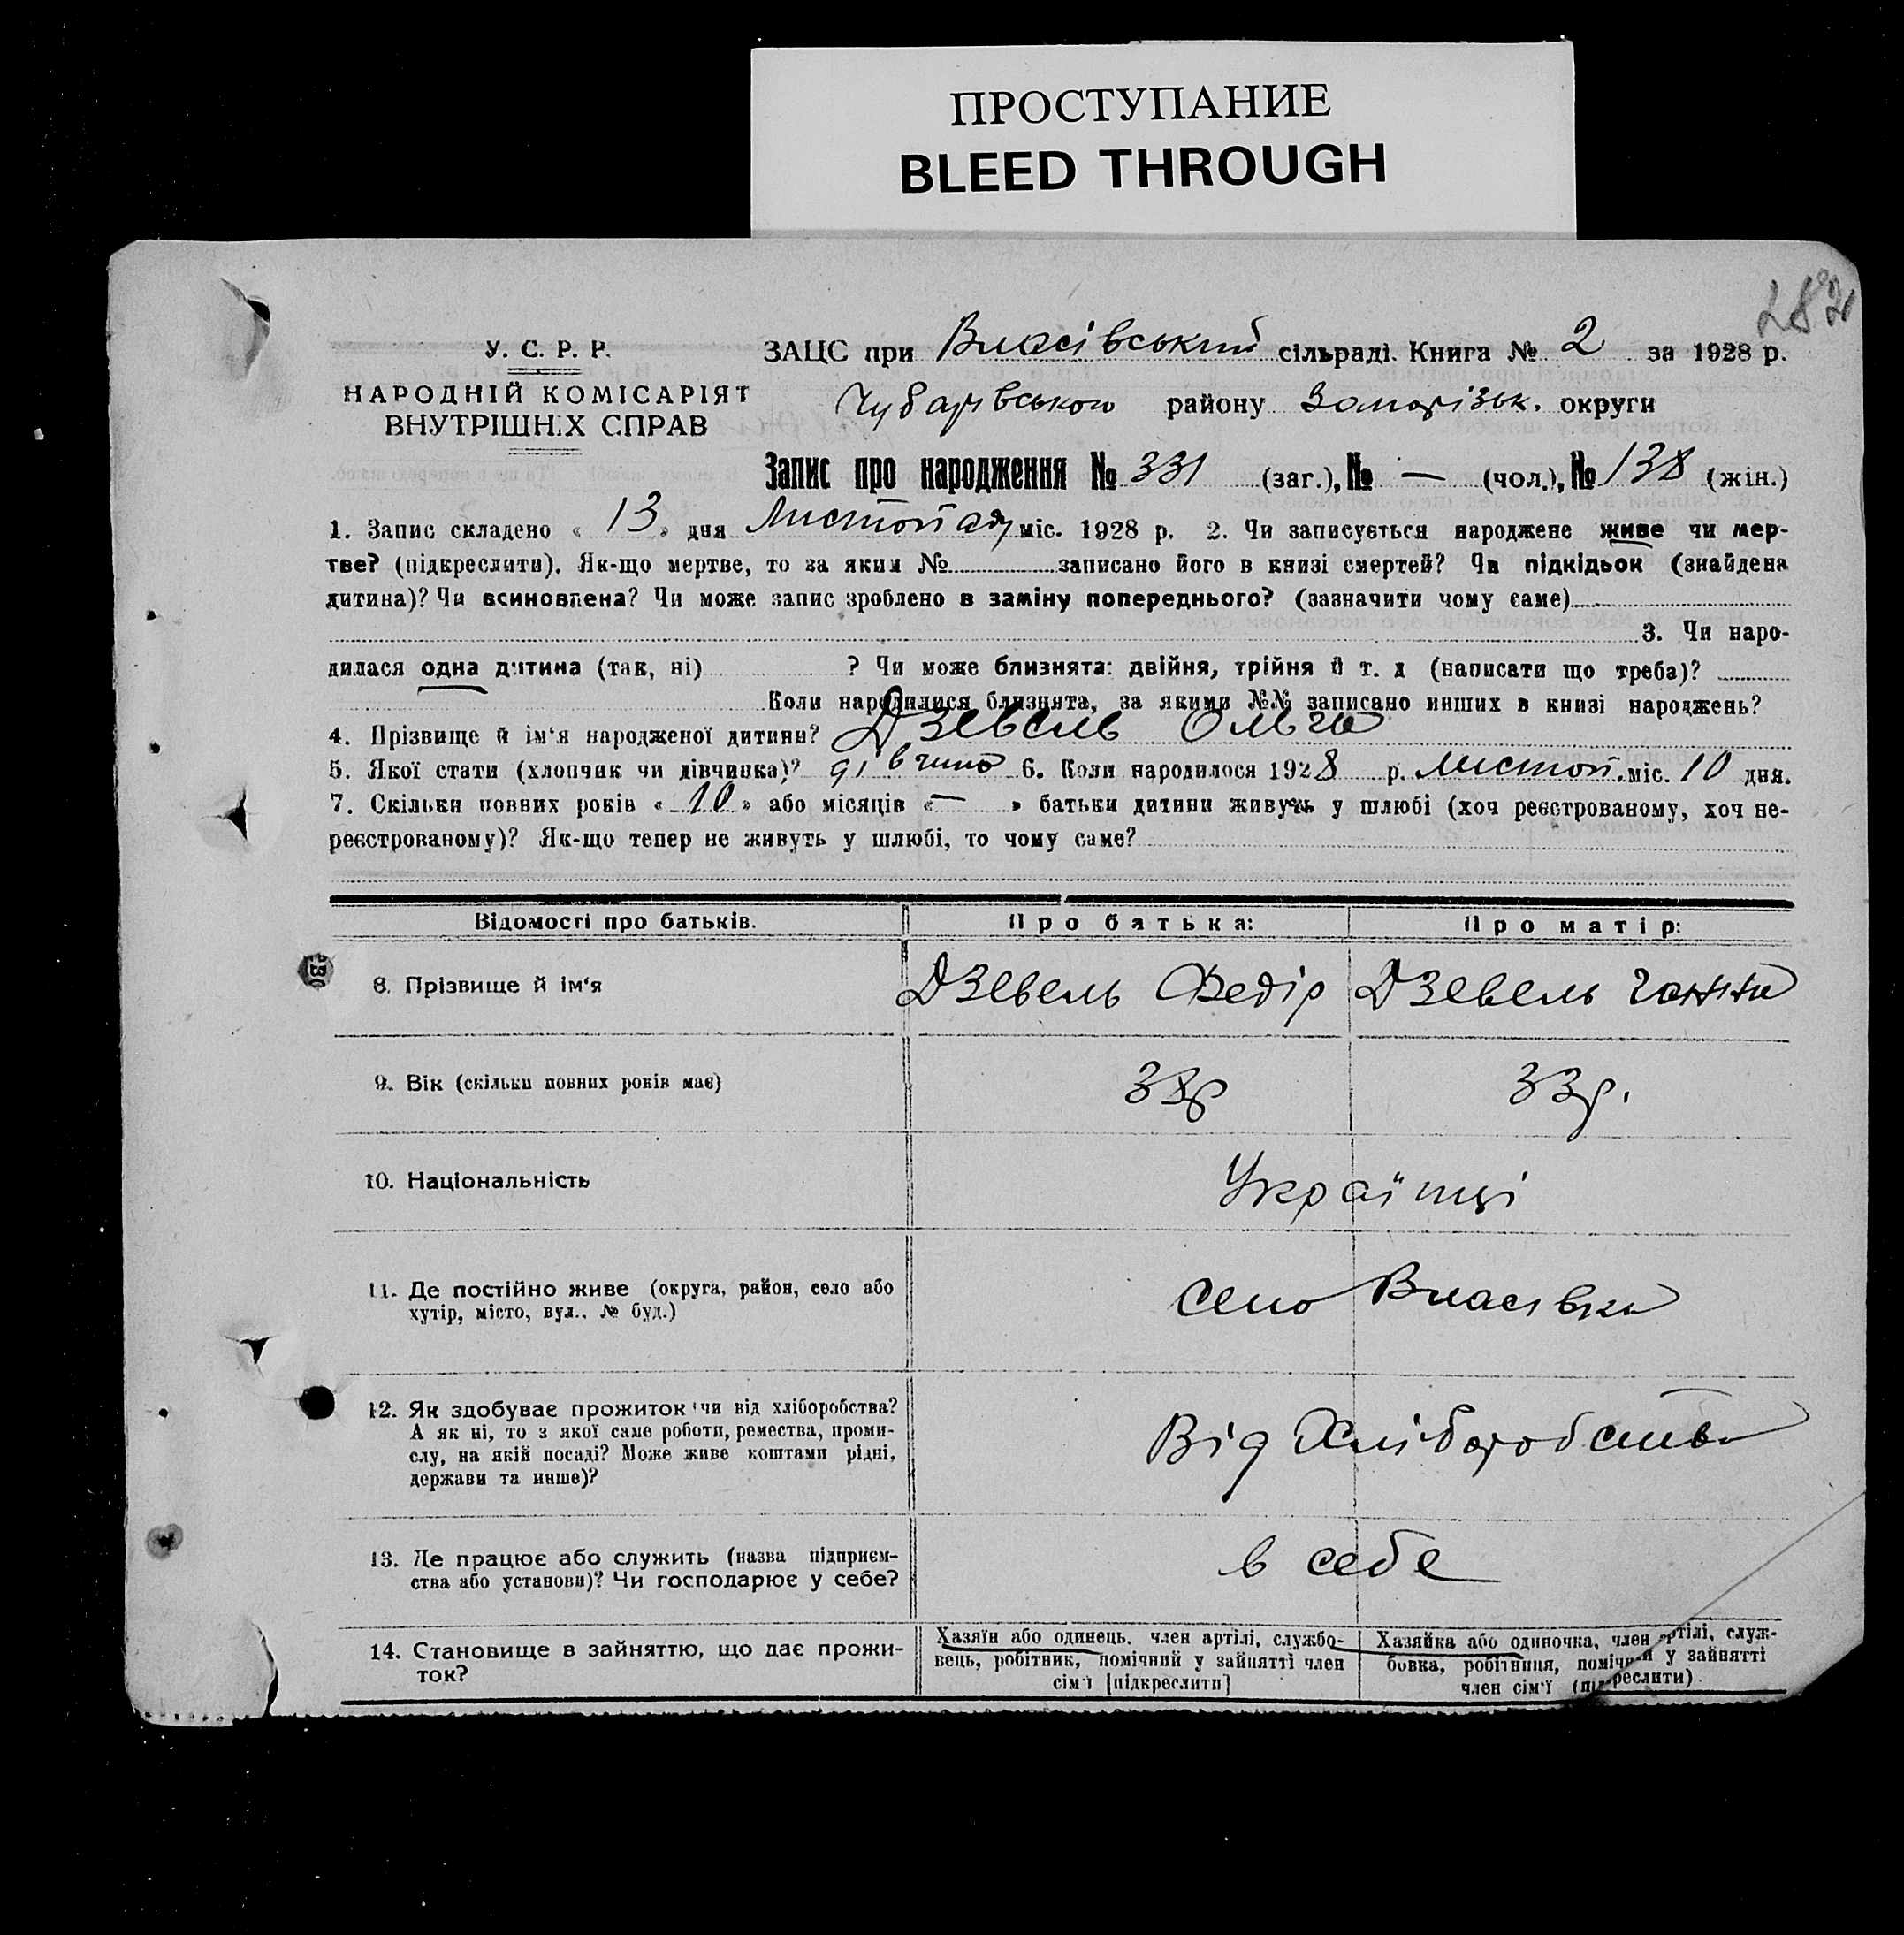 ПРОСТУПАНИЕ
BLEED THROUGH
282
У. С. Р. Р.
НАРОДНІЙ КОМІСАРІЯТ
ВНУТРІШНІХ СПРАВ
ЗАЦС при Власівський сільраді. Книга № 2 за 1928 р.
Чубарівського району Запорізьк. округи
Запис про народження № 331 (заг.), № — (чол.), № 138 (жін.)
1. Запис складено « 13 » дня Листопаду міс. 1928 р. 2. Чи записується народжене живе чи мер-
тве? (підкреслити). Як-що мертве, то за яким № записано його в книзі смертей? Чи підкідьок (знайдена
дитина)? Чи всиновлена? Чи може запис зроблено в заміну попереднього? (зазначити чому саме)
3. Чи наро-
дилася одна дитина (так, ні) ? Чи може близнята: двійня, трійня й т. д (написати що треба)?
Коли народилися близнята, за якими №№ записано инших в книзі народжень?
4. Прізвище й ім'я народженої дитини? Дзевель Ольга
5. Якої стати (хлопчик чи дівчинка)? дівчина 6. Коли народилося 1928 р. Листоп. міс. 10 дня.
7. Скільки повних років « 10 » або місяців « — » батьки дитини живуть у шлюбі (хоч реєстрованому, хоч не-
реєстрованому)? Як-що тепер не живуть у шлюбі, то чому саме?
Відомості про батьків. Про батька: Про матір:
8. Прізвище й ім'я Дзевель Федір Дзевель Ганна
9. Вік (скільки повних років має) 38р 33р.
10. Національність Українці
11. Де постійно живе (округа, район, село або
хутір, місто, вул., № буд.) село Власівка
12. Як здобуває прожиток (чи від хліборобства?
А як ні, то з якої саме роботи, ремества, проми-
слу, на якій посаді? Може живе коштами рідні,
держави та инше)? Від Хліборобства
13. Де працює або служить (назва підприєм-
ства або установи)? Чи господарює у себе? в себе
14. Становище в зайняттю, що дає прожи-
ток?
Хазяїн або одинець, член артілі, службо-
вець, робітник, помічний у зайнятті член
сім'ї [підкреслити]
Хазяйка або одиночка, член артілі, служ-
бовка, робітниця, помічний у зайнятті
член сім'ї (підкреслити).